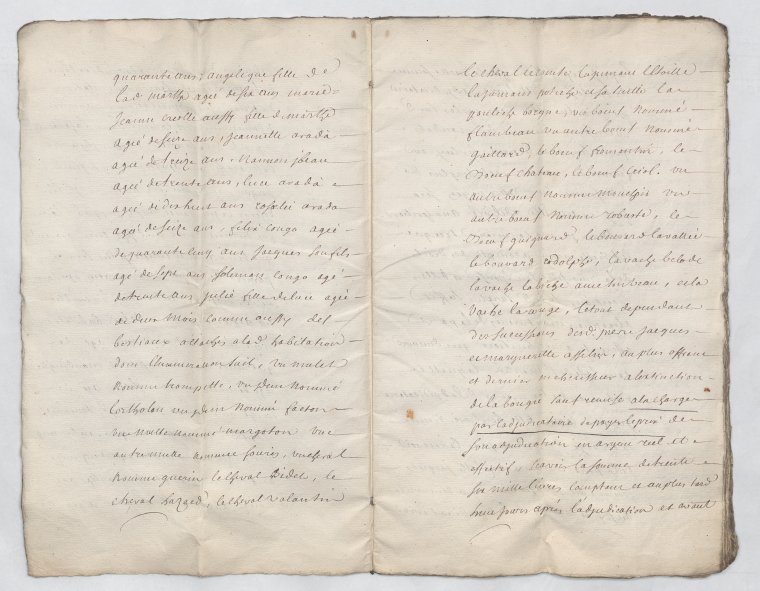 quarante ans, angelique fille de
lad. marthe agée de six ans marie
jeanne creolle aussy fille de marthe
agée de seize ans, jeannette arada
agée de treize ans, nannon
agée de trente ans, luce arada
agée de dix huit ans rosalie arada
agée de seize ans, felix congo agé
de quarante cinq ans jacques son fils
agé de sept ans soliman congo agé
de trente ans julie fille de luce agée
de deux mois comme aussy des
bestiaux attachés a lad. habitation
dont l'enumeration suit, un mulet
nommé trompette, un idem nommé
un idem nommé facton
une mulle nommé margoton une
autre mulle nommée souris, un cheval
nommé le cheval Bidet, le
cheval hazard, le cheval volantin
le cheval lecomte la jument letoille
la jument et sa suitte la
pouliche une boeuf nommé
flambeau un autre boeuf nommé
gaillard, le boeuf fromentin, le
boeuf chateau, le boeuf un
autre boeuf nommé un
autre boeuf nommé robuste, le
boeuf le bouvard lavallée
le bouvard rodolphe, la vache belote
la vache la biche avec un veau, et la
vache la rouge, le tout dependant
des successions desd. pierre jacques
et marguerite au plus offrant
et dernier encherisseur a l'extinction
de la bougie sans remise a la charge
par l'adjudicataire de payer le prix de
son adjudication en argent réel et
effectif, scavoir la somme de trente
six mille livres comptant et au plus tard
jours après l'adjudication et avant